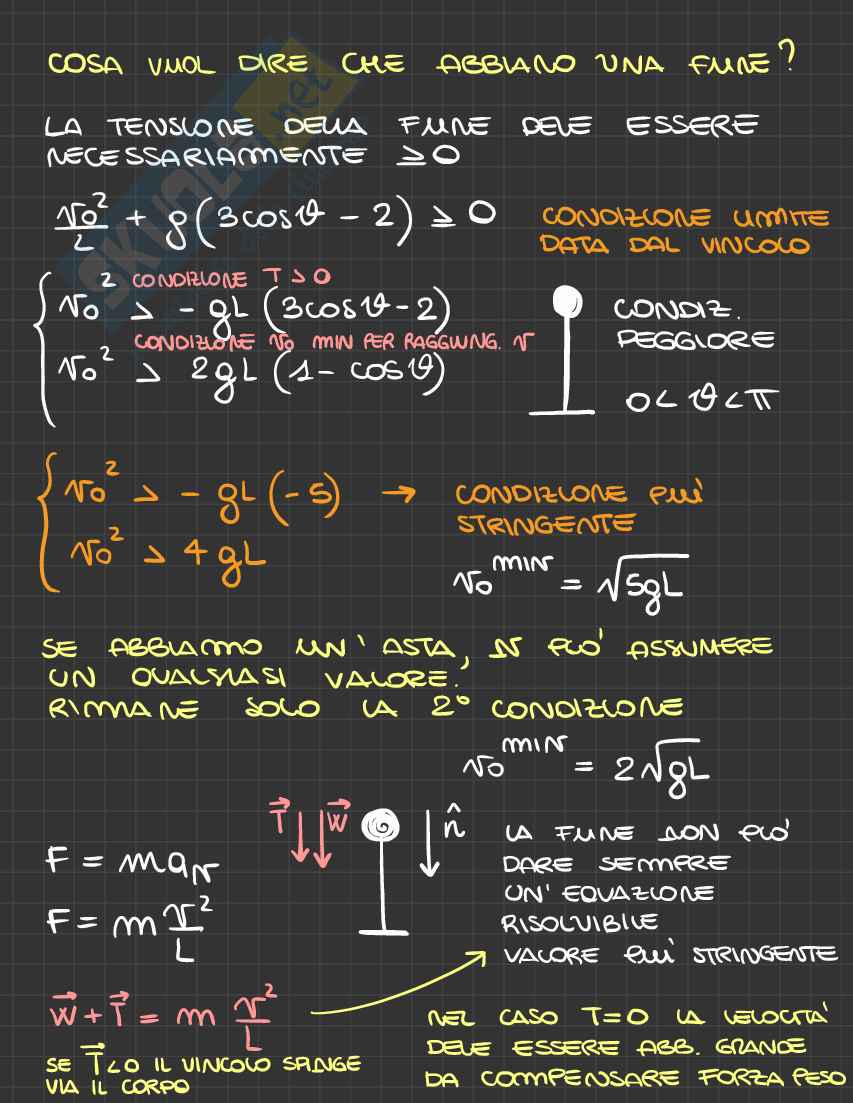 COSA VUOL DIRE CHE ABBIAMO UNA FUNE?
LA TENSIONE DELLA FUNE DEVE ESSERE
NECESSARIAMENTE ≥0
v₀²/L + g(3cosϑ - 2) ≥ 0
CONDIZIONE LIMITE
DATA DAL VINCOLO
CONDIZIONE T > 0
v₀² > - gL (3cosϑ - 2)
CONDIZIONE v₀ MIN PER RAGGIUNG. v
v₀² > 2gL (1 - cosϑ)
CONDIZ.
PEGGIORE
0 < ϑ < π
v₀² > - gL (-5) → CONDIZIONE PIÙ
STRINGENTE
v₀² > 4gL
v₀ᵐⁱⁿ = √5gL
SE ABBIAMO UN' ASTA, N PUO' ASSUMERE
UN QUALSIASI VALORE.
RIMANE SOLO LA 2° CONDIZIONE
v₀ᵐⁱⁿ = 2√gL
T W n̂
F = maₙ
F = m v²/L
LA FUNE NON PUO'
DARE SEMPRE
UN'EQUAZIONE
RISOLVIBILE
VALORE PIÙ STRINGENTE
W + T = m v²/L
SE T<0 IL VINCOLO SPINGE
VIA IL CORPO
NEL CASO T=0 LA VELOCITA'
DEVE ESSERE ABB. GRANDE
DA COMPENSARE FORZA PESO
SKUOLA.net